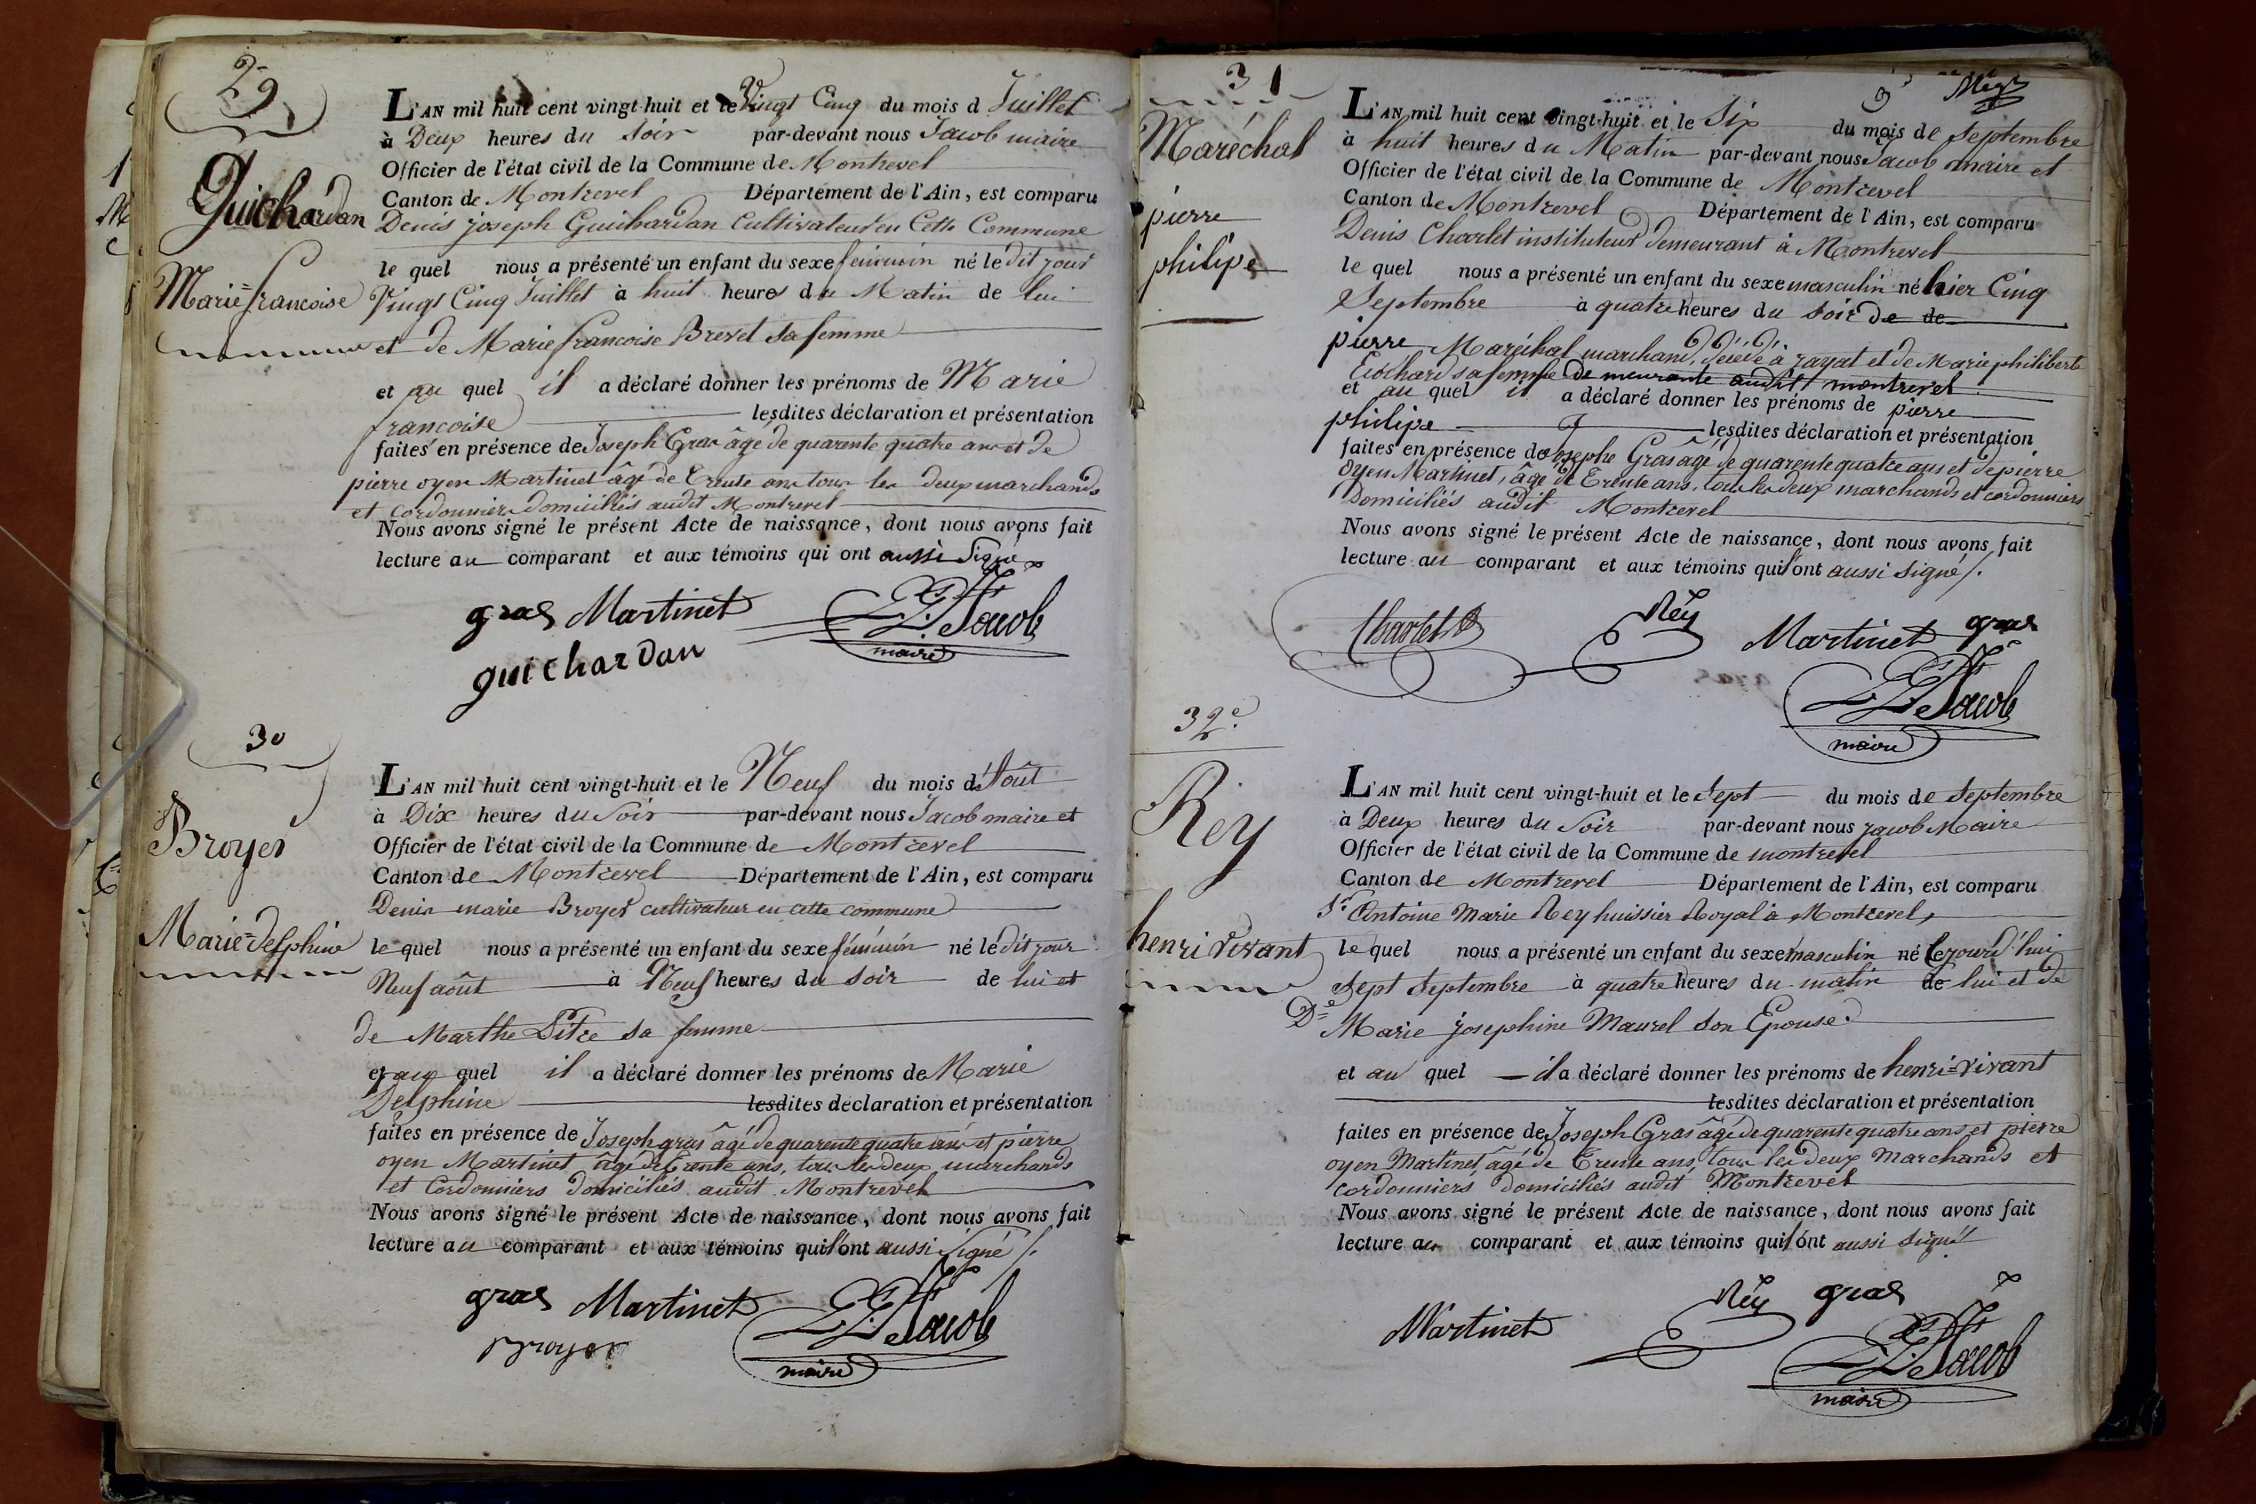 29
Guichardan
Marie=francoise
L'AN mil huit cent vingt-huit et le Vingt Cinq du mois d Juillet
à Deux heures du Soir par-devant nous Jacob maire
Officier de l'état civil de la Commune de Montrevel
Canton de Montrevel Département de l'Ain, est comparu
Denis joseph Guichardan Cultivateur en Cette Commune
le quel nous a présenté un enfant du sexe feminin né le dit jour
Vingt Cinq Juillet à huit heures du Matin de lui
et de Marie francoise Brevet sa femme
et au quel il a déclaré donner les prénoms de Marie
francoise lesdites déclaration et présentation
faites en présence de Joseph Gras âgé de quarente quatre ans et de
pierre oyen Martinet âgé de Trente ans tous les deux marchands
et cordonniers domiciliés audit Montrevel
Nous avons signé le présent Acte de naissance, dont nous avons fait
lecture au comparant et aux témoins qui ont aussi Signé
gras Martinet Jacob
maire
guichardan
30
Broyer
Marie=Delphine
L'AN mil huit cent vingt-huit et le Neuf du mois d'Août
à Dix heures du Soir par-devant nous Jacob maire et
Officier de l'état civil de la Commune de Montrevel
Canton de Montrevel Département de l'Ain, est comparu
Denis marie Broyer cultivateur en cette commune
le quel nous a présenté un enfant du sexe féminin né le dit jour
Neuf août à Neuf heures du soir de lui et
de Marthe Pitre sa femme
et au quel il a déclaré donner les prénoms de Marie
Delphine lesdites déclaration et présentation
faites en présence de Joseph gras âgé de quarente quatre ans et pierre
oyen Martinet âgé de Trente ans, tous les deux marchands
et Cordonniers domiciliés audit Montrevel
Nous avons signé le présent Acte de naissance, dont nous avons fait
lecture au comparant et aux témoins qui ont aussi Signé
gras Martinet Jacob
Broyer maire
31
Maréchal
pierre
philipe
L'AN mil huit cent vingt-huit et le Six du mois de Septembre
à huit heures du Matin par-devant nous Jacob maire et
Officier de l'état civil de la Commune de Montrevel
Canton de Montrevel Département de l'Ain, est comparu
Denis Charlet instituteur demeurant à Montrevel
le quel nous a présenté un enfant du sexe masculin né hier Cinq
Septembre à quatre heures du soir de de
pierre Maréchal marchand, décédé à et de Marie philiberte
sa femme demeurante audit montrevel
et au quel il a déclaré donner les prénoms de pierre
philipe lesdites déclaration et présentation
faites en présence de josephe Gras agé de quarente quatre ans et de pierre
oyen Martinet, âgé de Trente ans, tous les deux marchands et cordonniers
Domiciliés audit Montrevel
Nous avons signé le présent Acte de naissance, dont nous avons fait
lecture au comparant et aux témoins qui ont aussi signé
Charlet Rey Martinet gras
Jacob
maire
32e
Rey
henri vivant
L'AN mil huit cent vingt-huit et le Sept du mois de Septembre
à Deux heures du Soir par-devant nous jacob Maire
Officier de l'état civil de la Commune de montrevel
Canton de Montrevel Département de l'Ain, est comparu
Sr Antoine Marie Rey huissier Royal à Montrevel,
le quel nous a présenté un enfant du sexe masculin né Cejourd'hui
Sept Septembre à quatre heures du matin de lui et de
De Marie josephine Maurel son Epouse
et au quel il a déclaré donner les prénoms de henri=vivant
lesdites déclaration et présentation
faites en présence de Joseph Gras âgé de quarente quatre ans et pierre
oyen Martinet âgé de Trente ans, tous les deux Marchands et
cordonniers domiciliés audit Montrevel
Nous avons signé le présent Acte de naissance, dont nous avons fait
lecture au comparant et aux témoins qui ont aussi signé
Martinet Rey gras
Jacob
maire